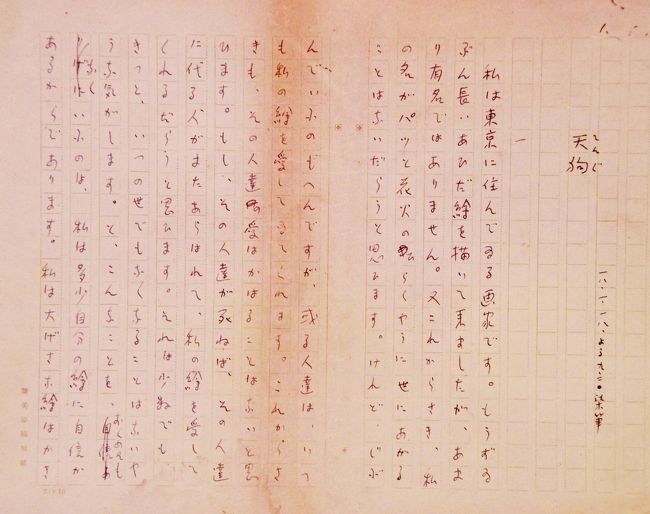 1.
てんぐ
天狗
一
私は東京に住んでゐる画家です。もうずゐ
ぶん長いあひだ繪を描いて来ましたが、あま
り有名ではありません。又これからさき、私
の名がパッと花火のらくやうに世にあがる
ことはないだらうと思ひます。けんど、じぶ
んでいふのもへんですが、或る人達は、いつ
も私の繪を愛してゐてくれます。これからさ
きも、その人達の愛はかはることはないと思
ひます。もし、その人達が死ねば、その人達
に代る人がまたあらはれて、私の繪を愛して
くれるだらうと思ひます。それは少数でも、
きつと、いつの世でもなくなることはないや
うな気がします。と、こんなことを、おくめんも
なくいふのは、私は多少自分の繪に自信が
あるからであります。私は大げさな繪はかき